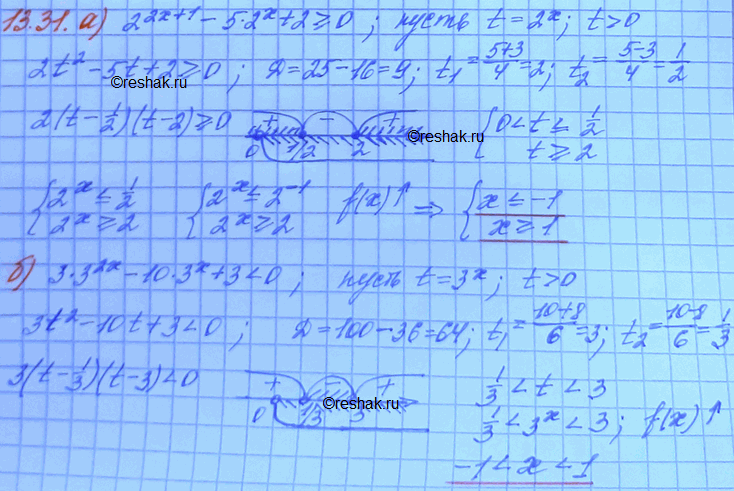 13.31. а) 2^{2x+1} - 5·2^x + 2 ≥ 0 ; пусть t = 2^x ; t > 0
2t² - 5t + 2 ≥ 0 ; Д = 25 - 16 = 9 ; t₁ = \frac{5+3}{4} = 2 ; t₂ = \frac{5-3}{4} = \frac{1}{2}
©reshak.ru
2(t - \frac{1}{2})(t - 2) ≥ 0 + - + 0 1/2 2 ©reshak.ru { 0 < t ≤ \frac{1}{2}
t ≥ 2
{ 2^x ≤ \frac{1}{2} { 2^x ≤ 2^{-1} f(x)↑ ⇒ { x ≤ -1
2^x ≥ 2 2^x ≥ 2 x ≥ 1
б) 3·3^{2x} - 10·3^x + 3 < 0 ; пусть t = 3^x ; t > 0
3t² - 10t + 3 < 0 ; Д = 100 - 36 = 64 ; t₁ = \frac{10+8}{6} = 3 ; t₂ = \frac{10-8}{6} = \frac{1}{3}
3(t - \frac{1}{3})(t - 3) < 0 + - + 0 1/3 3 ©reshak.ru \frac{1}{3} < t < 3
\frac{1}{3} < 3^x < 3 ; f(x)↑
-1 < x < 1